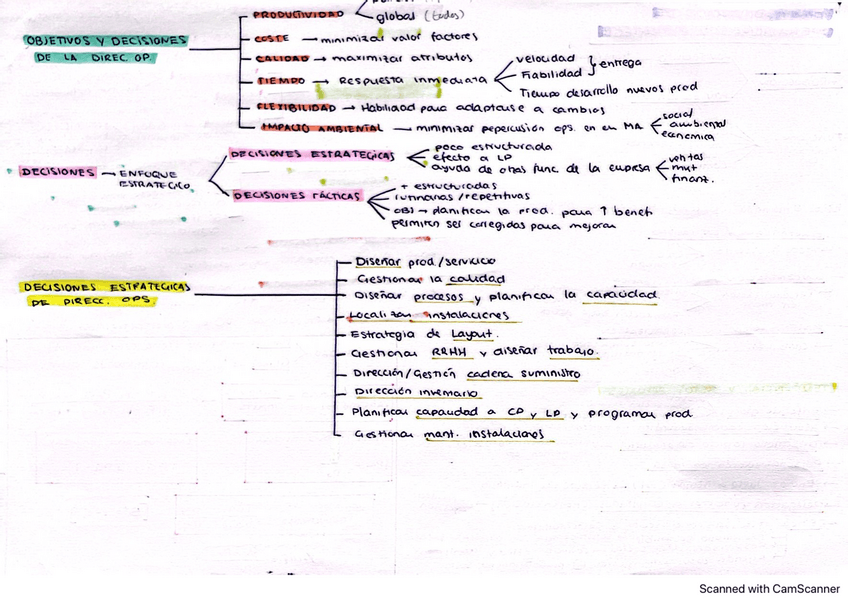 PRODUCTIVIDAD
global (todos)
OBJETIVOS Y DECISIONES
DE LA DIREC. OP.
COSTE → minimizar valor factores
CALIDAD → maximizar atributos
TIEMPO → Respuesta inmediata
velocidad
Fiabilidad } entrega
Tiempo desarrollo nuevos prod
FLEXIBILIDAD → Habilidad para adaptarse a cambios
IMPACTO AMBIENTAL → minimizar repercusión ops. en en MA
social
ambiental
económica
DECISIONES → ENFOQUE
ESTRATEGICO
DECISIONES ESTRATEGICAS
poco estructurada
efecto a LP
ayuda de otras func. de la empresa
ventas
mkt
finant.
DECISIONES TÁCTICAS
+ estructuradas
rutinarias / repetitivas
OBJ → planificar la prod. para ↑ benef
permiten ser corregidas para mejorar
DECISIONES ESTRATEGICAS
DE DIRECC. OPS.
Diseñar prod./servicio
Gestionar la calidad
Diseñar procesos y planificar la capacidad
Localizar instalaciones
Estrategia de Layout.
Gestionar RRHH y diseñar trabajo.
Dirección/Gestión cadena suministro
Dirección inventario
Planificar capacidad a CP y LP y programar prod
Gestionar mant. instalaciones
Scanned with CamScanner